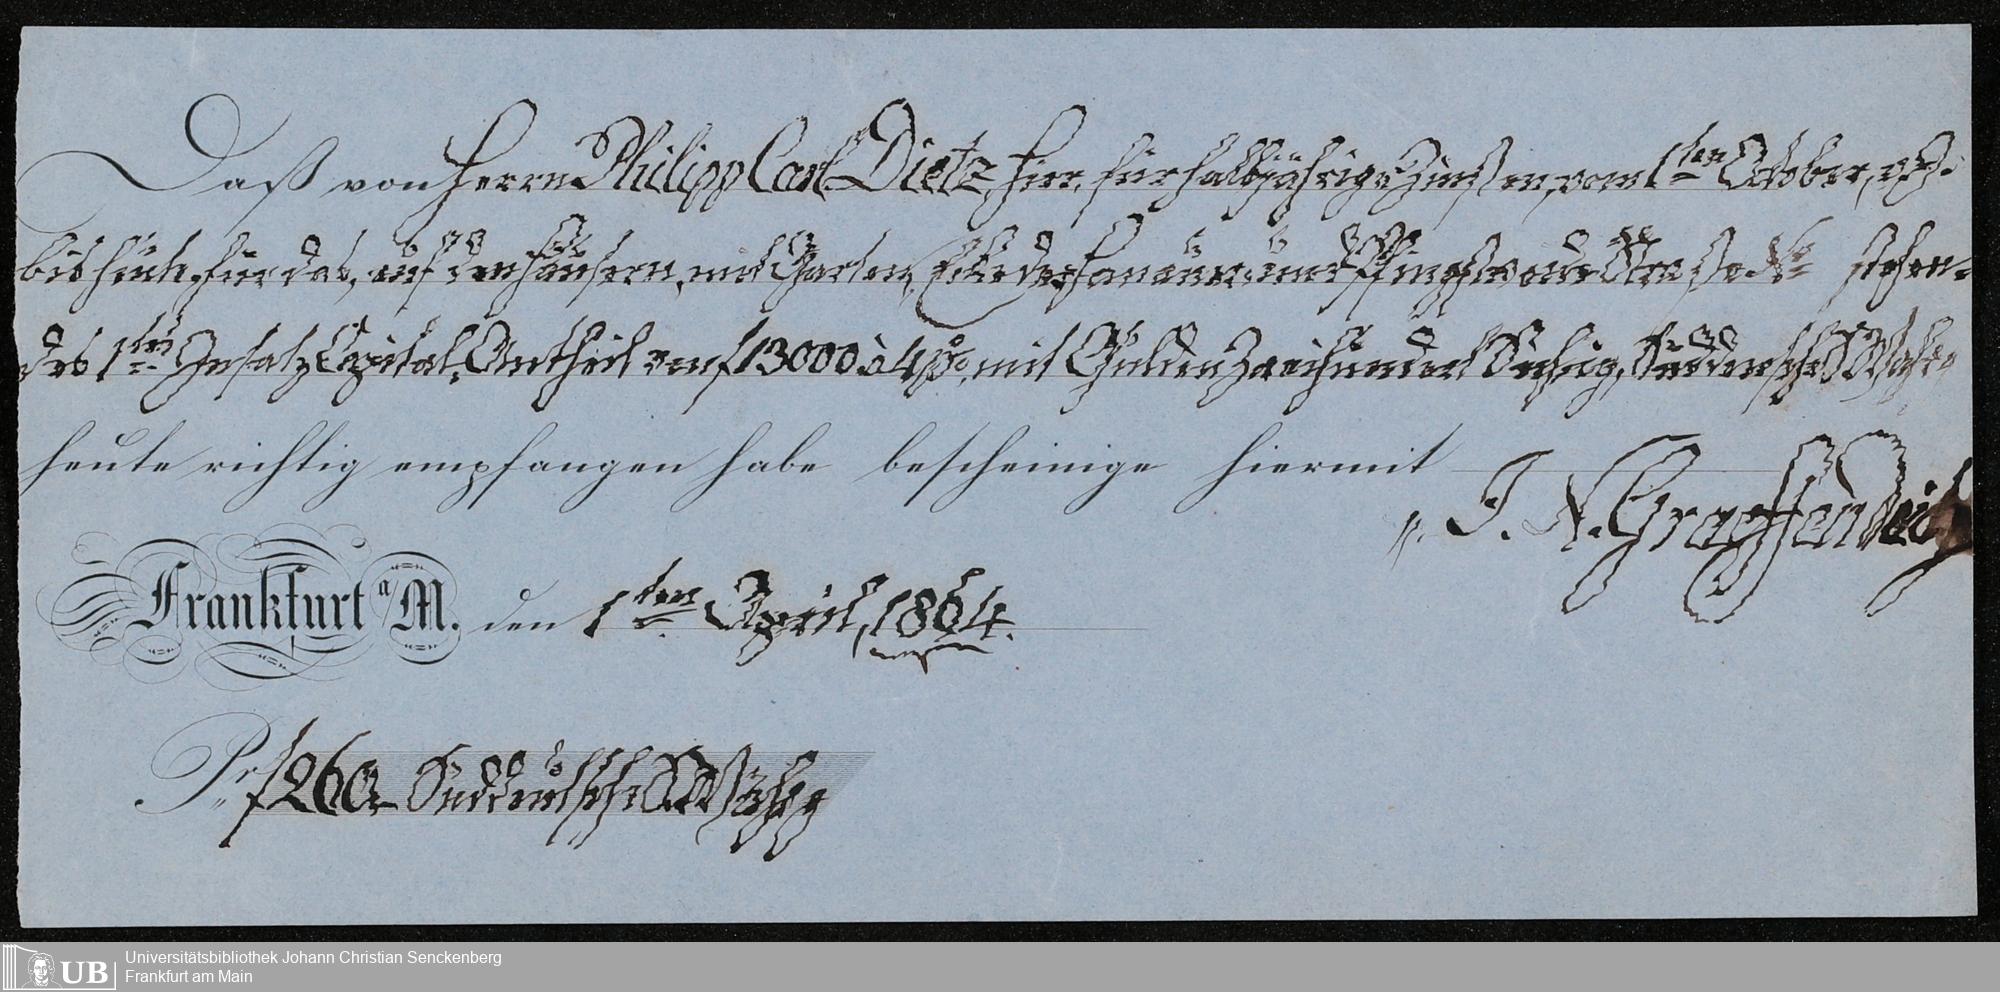 Daß von Herrn Philipp Carl Dietz, hier, für halbjährige Zinßen, vom 1ten October, a. p.
bis heute, für das, auf den Häusern, mit Garten, Ecke der Hanauer- und Pfingstweide Strasse No stehen-
des 1tes Insatz Capital, Antheil von f 13000 à 4 p%, mit Gulden Zweihundert Sechzig, Süddeutsche Währg
heute richtig empfangen habe bescheinige hiermit
J. N. Graeffendeich
Frankfurt a/M. den 1ten April, 1864.
Pr f 260,– Süddeutsche Währg